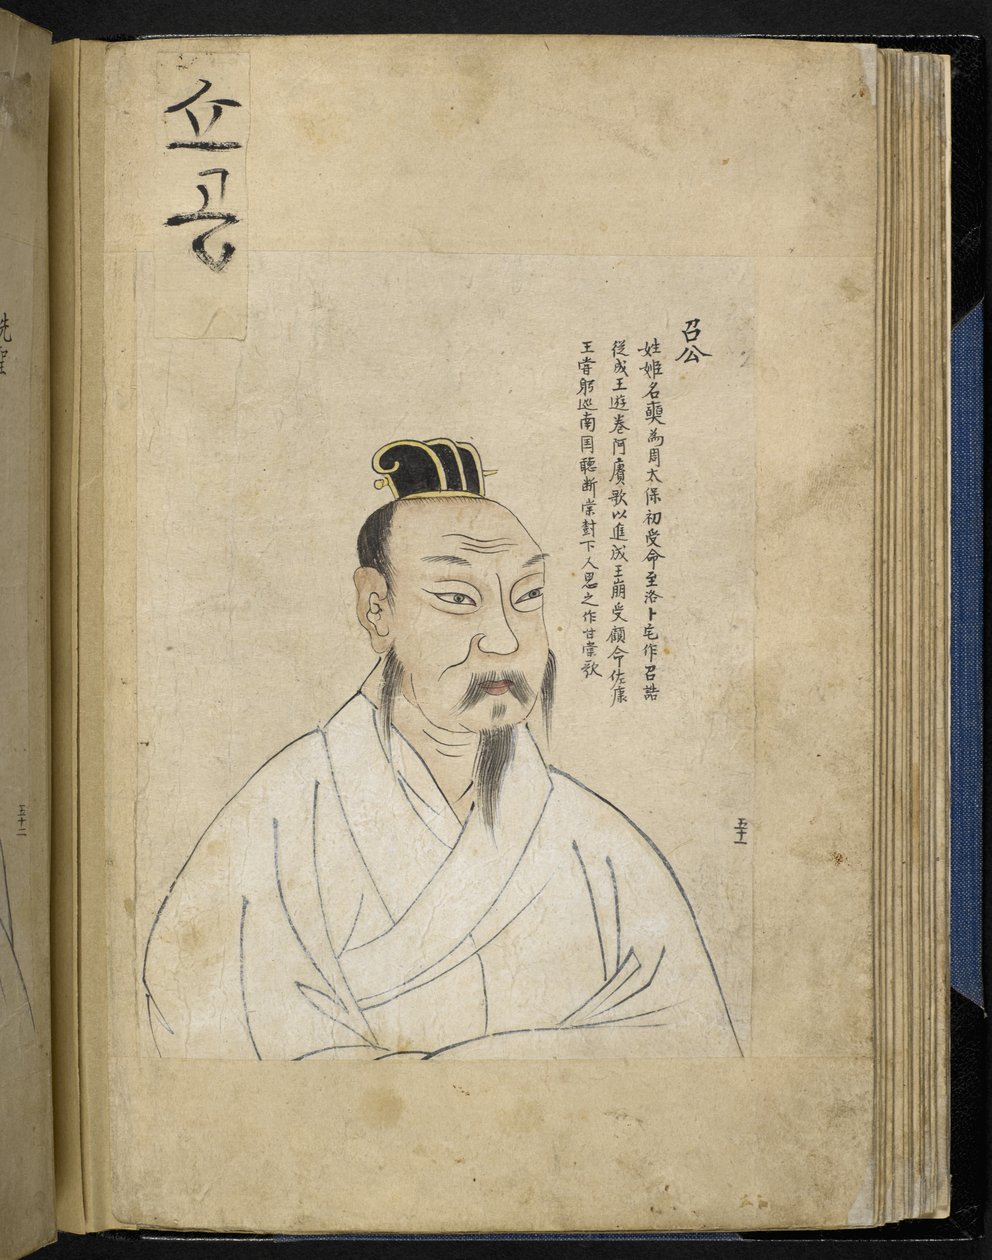 쇼공
召公
姓姬名奭為周太保初受命至洛卜宅作召誥
從成王遊卷阿賡歌以進成王崩受顧命佐康
王甞躬巡南囯聽断棠封下人思之作甘棠歌
五十一
先聖
五十二